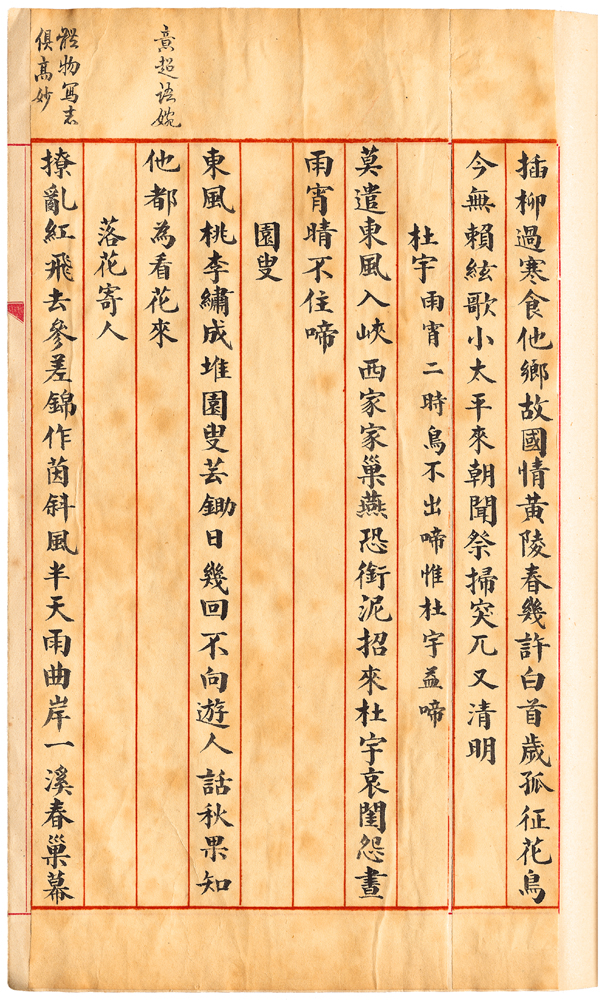 意超語婉
體物寫志
俱高妙
插柳過寒食他鄉故國情黃陵春幾許白首歲孤征花鳥
今無賴絃歌小太平來朝聞祭掃突兀又清明
杜宇 雨宵二時鳥不出啼惟杜宇益啼
莫遣東風入峽西家家巢燕恐銜泥招來杜宇哀閨怨晝
雨宵晴不住啼
園叟
東風桃李繡成堆園叟芸鋤日幾回不向遊人話秋果知
他都為看花來
落花寄人
撩亂紅飛去參差錦作茵斜風半天雨曲岸一溪春巢幕